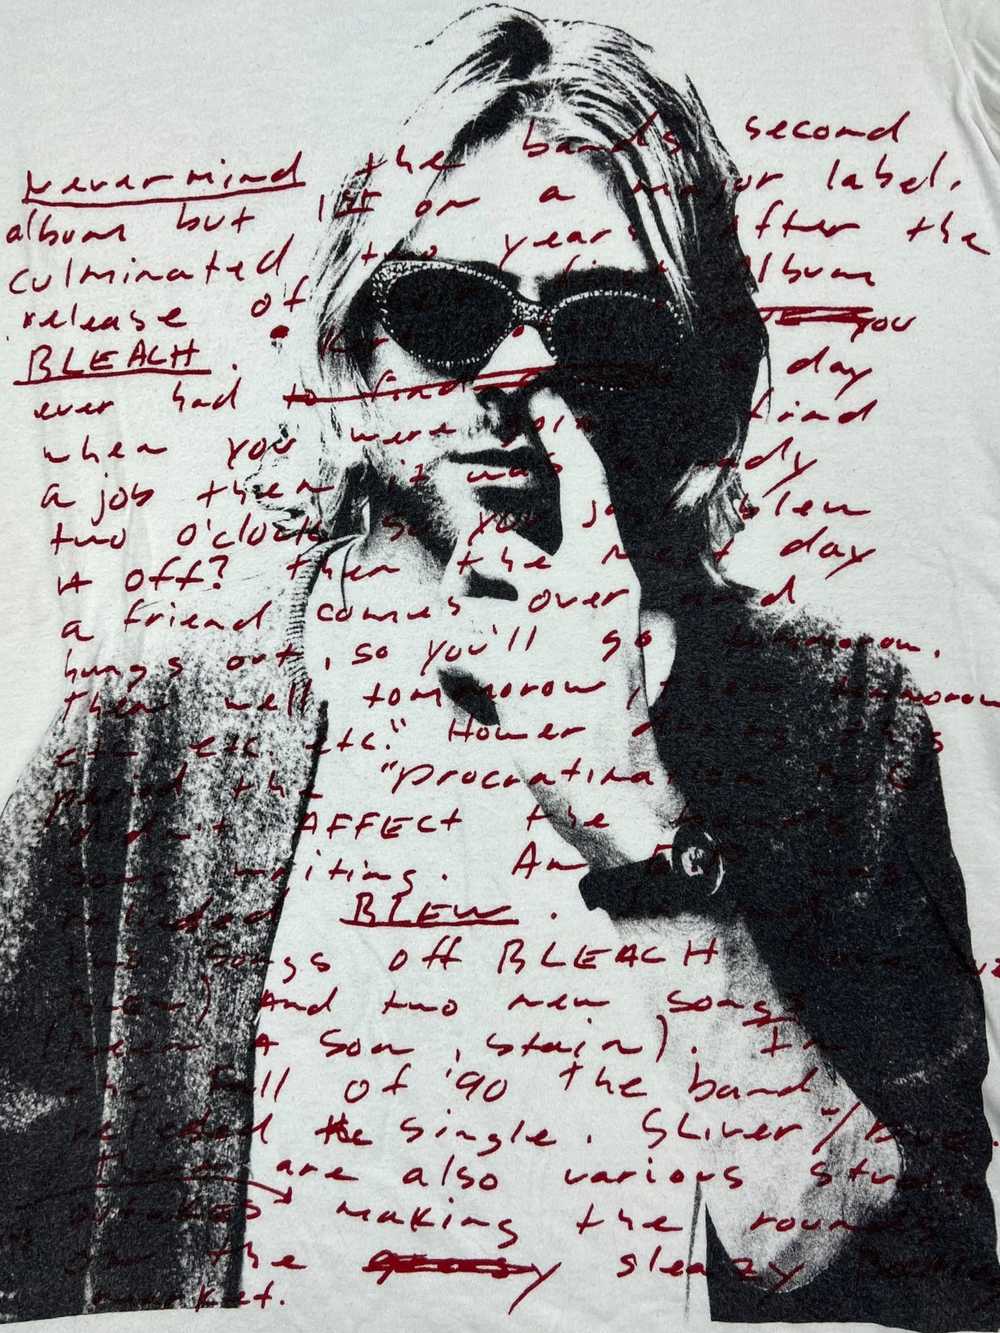 Nevermind the bands second
album but 1st on a major label,
culminated two years after the
release of album
BLEACH. you
ever had to find a day
when you were find
a job then it was ready
two o'clock so you just blew
it off? then the next day
a friend comes over and
hungs out, so you'll go tommorow.
then well tommorow, then tommorow
etc etc etc." Hower this
period the "procratination
didn't AFFECT the
song writing. An EP was
released BLEW.
two songs off BLEACH
BLEW) And two new songs
(Been A Son, stain). In
the Fall of '90 the band
released the single. Sliver"/Dive.
there are also various studio
outakes making the rounds
on the sleazy
market.